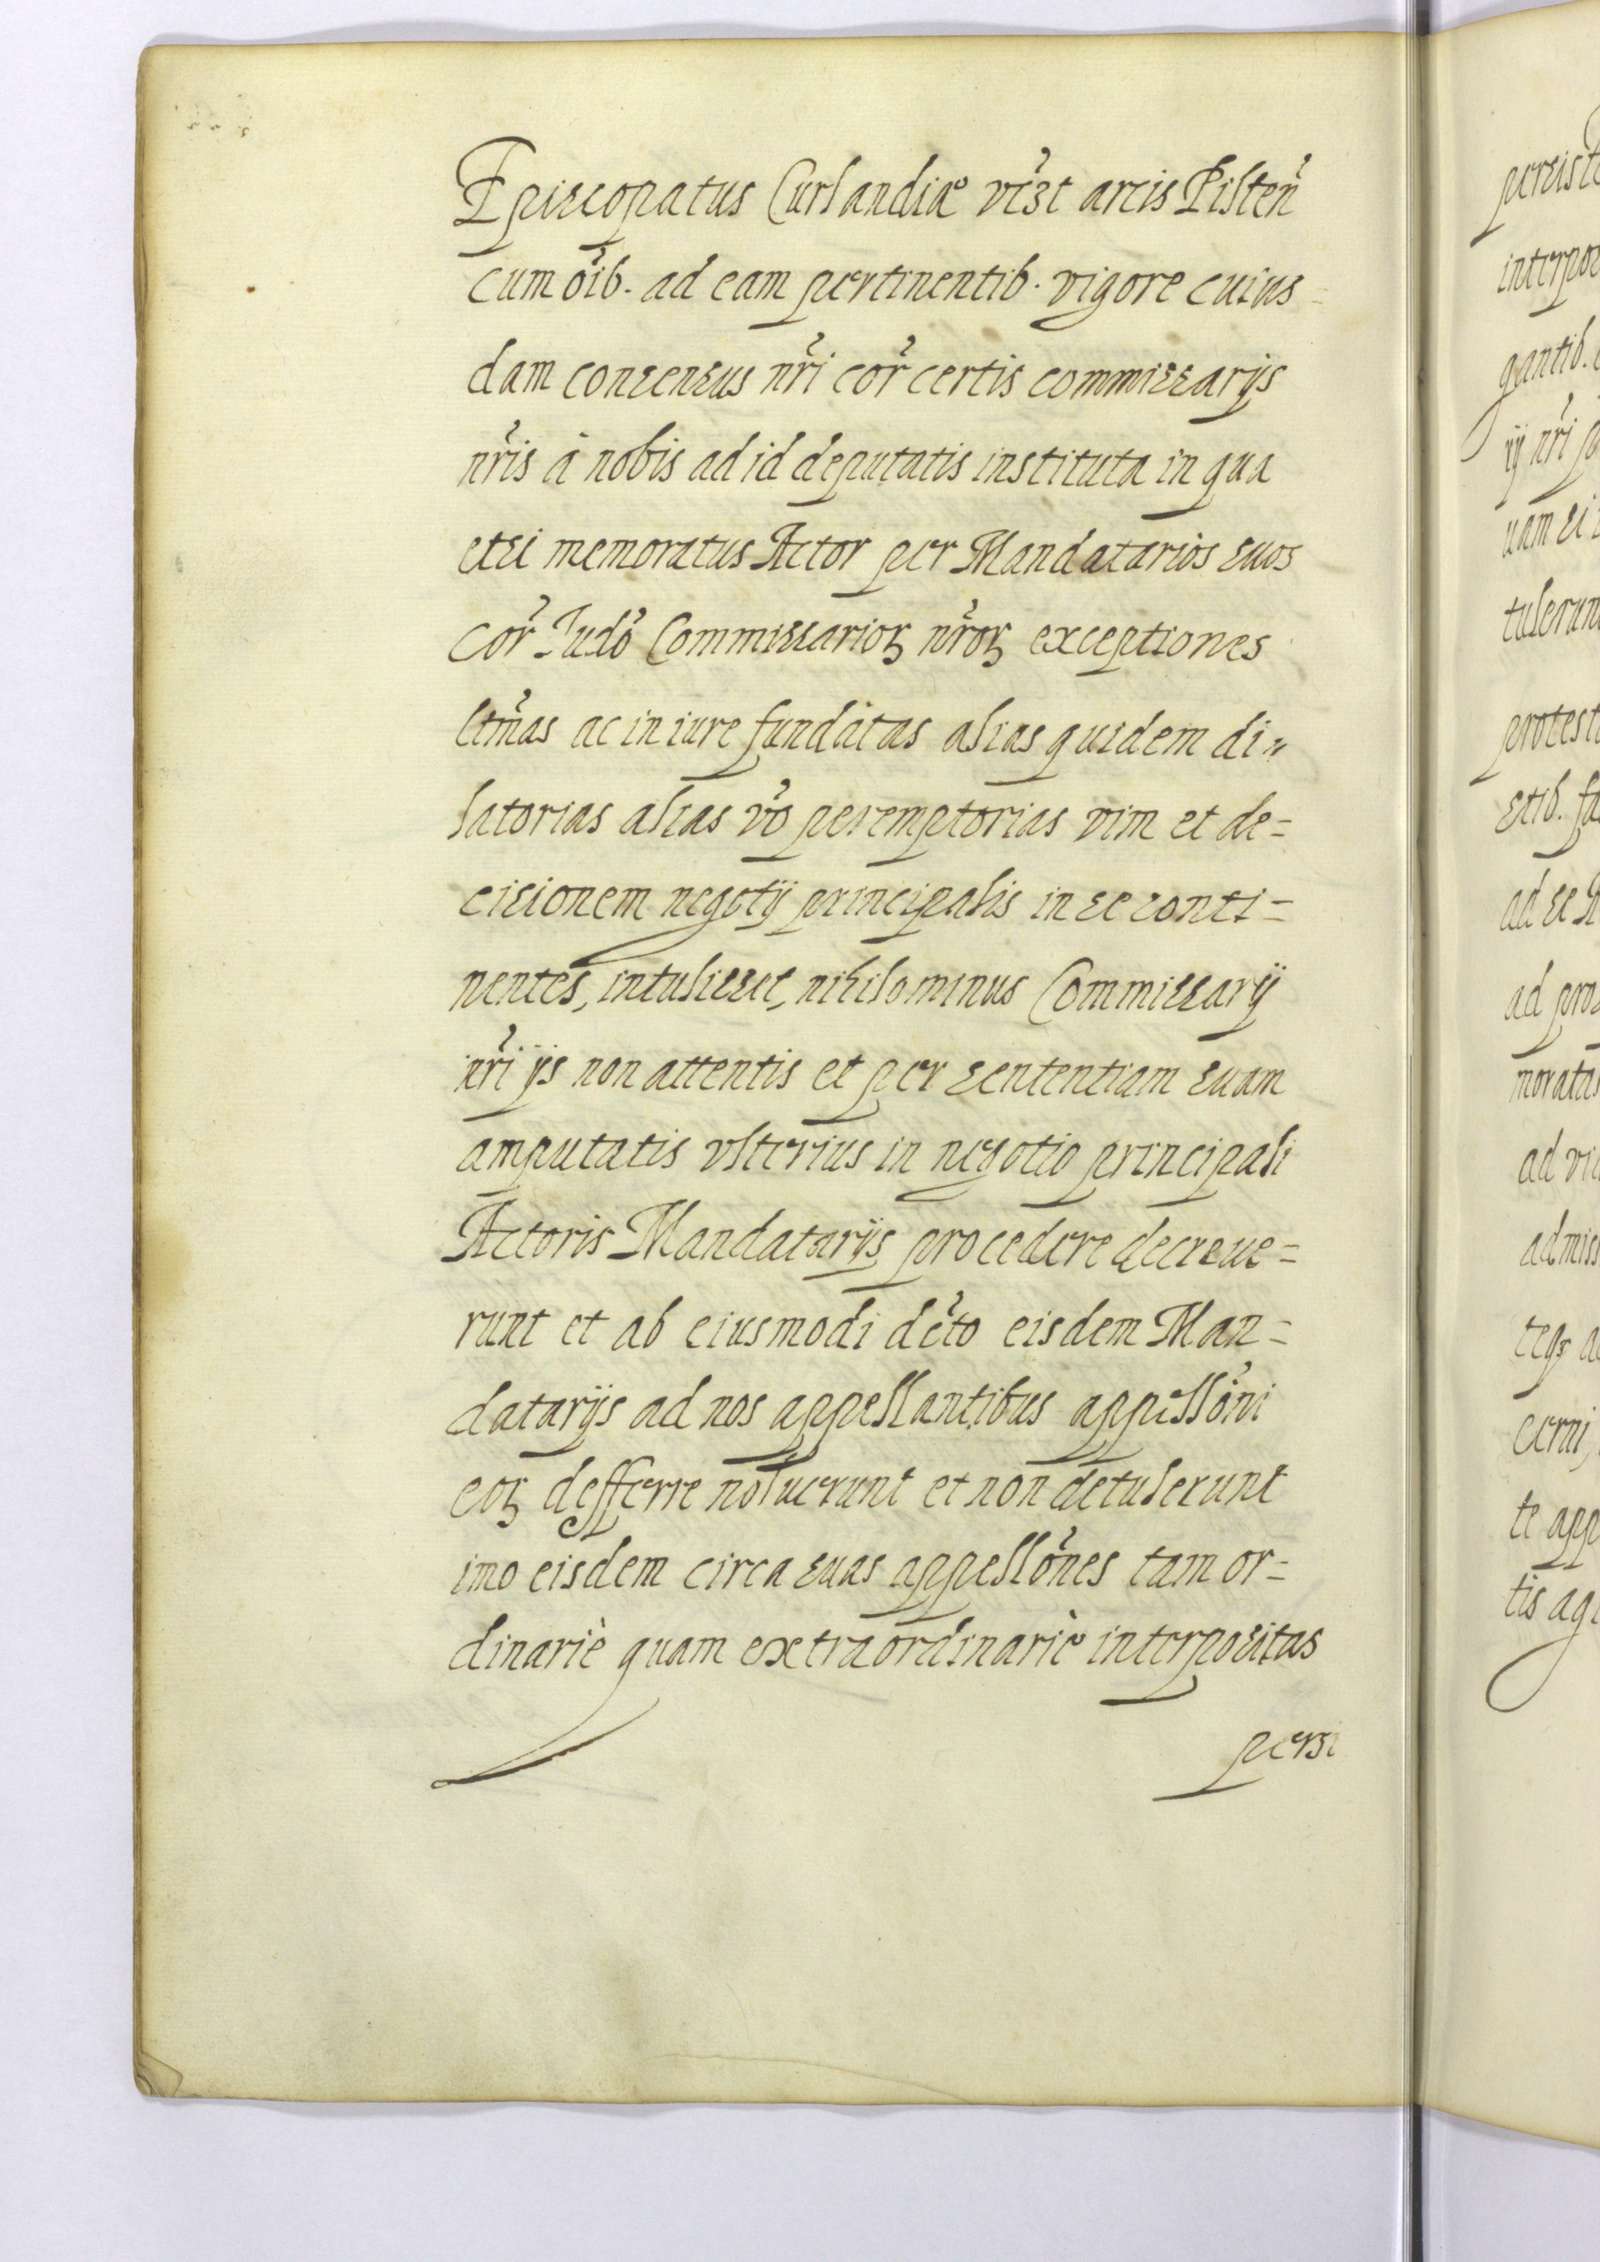 Episcopatus Curlandiæ vīzt arcis Pilteñ
cum oīb. ad eam pertinentib. vigore cuius-
dam consensus nr̄i cor̄ certis commissarijs
nr̄is à nobis ad id deputatis instituta in qua
etsi memoratus Actor per Mandatarios suos
Cor̄ Iudō Commissarioꝝ nr̄oꝝ exceptiones
ltm̄as ac in iure fundatas alias quidem di=
latorias alias vō peremptorias vim et de=
cisionem negotij principalis in se conti=
nentes, intulisset, nihilominus Commissarij
nr̄i ijs non attentis et per sententiam suam
amputatis vlterius in negotio principali
Actoris Mandatarijs procedere decreue=
runt et ab eiusmodi dēto eisdem Man=
datarijs ad nos appellantibus appellōni
eoꝝ defferre noluerunt et non detulerunt
imo eisdem circa suas appellōnes tam or=
dinariè quam extraordinariè interpositas
persi
persist
interpos
gantib.
ij nr̄i
uam si
tulerun
protest
stib. fa
ad se
ad pro
moratas
ad
admiss
cerni,
te app
tis ag